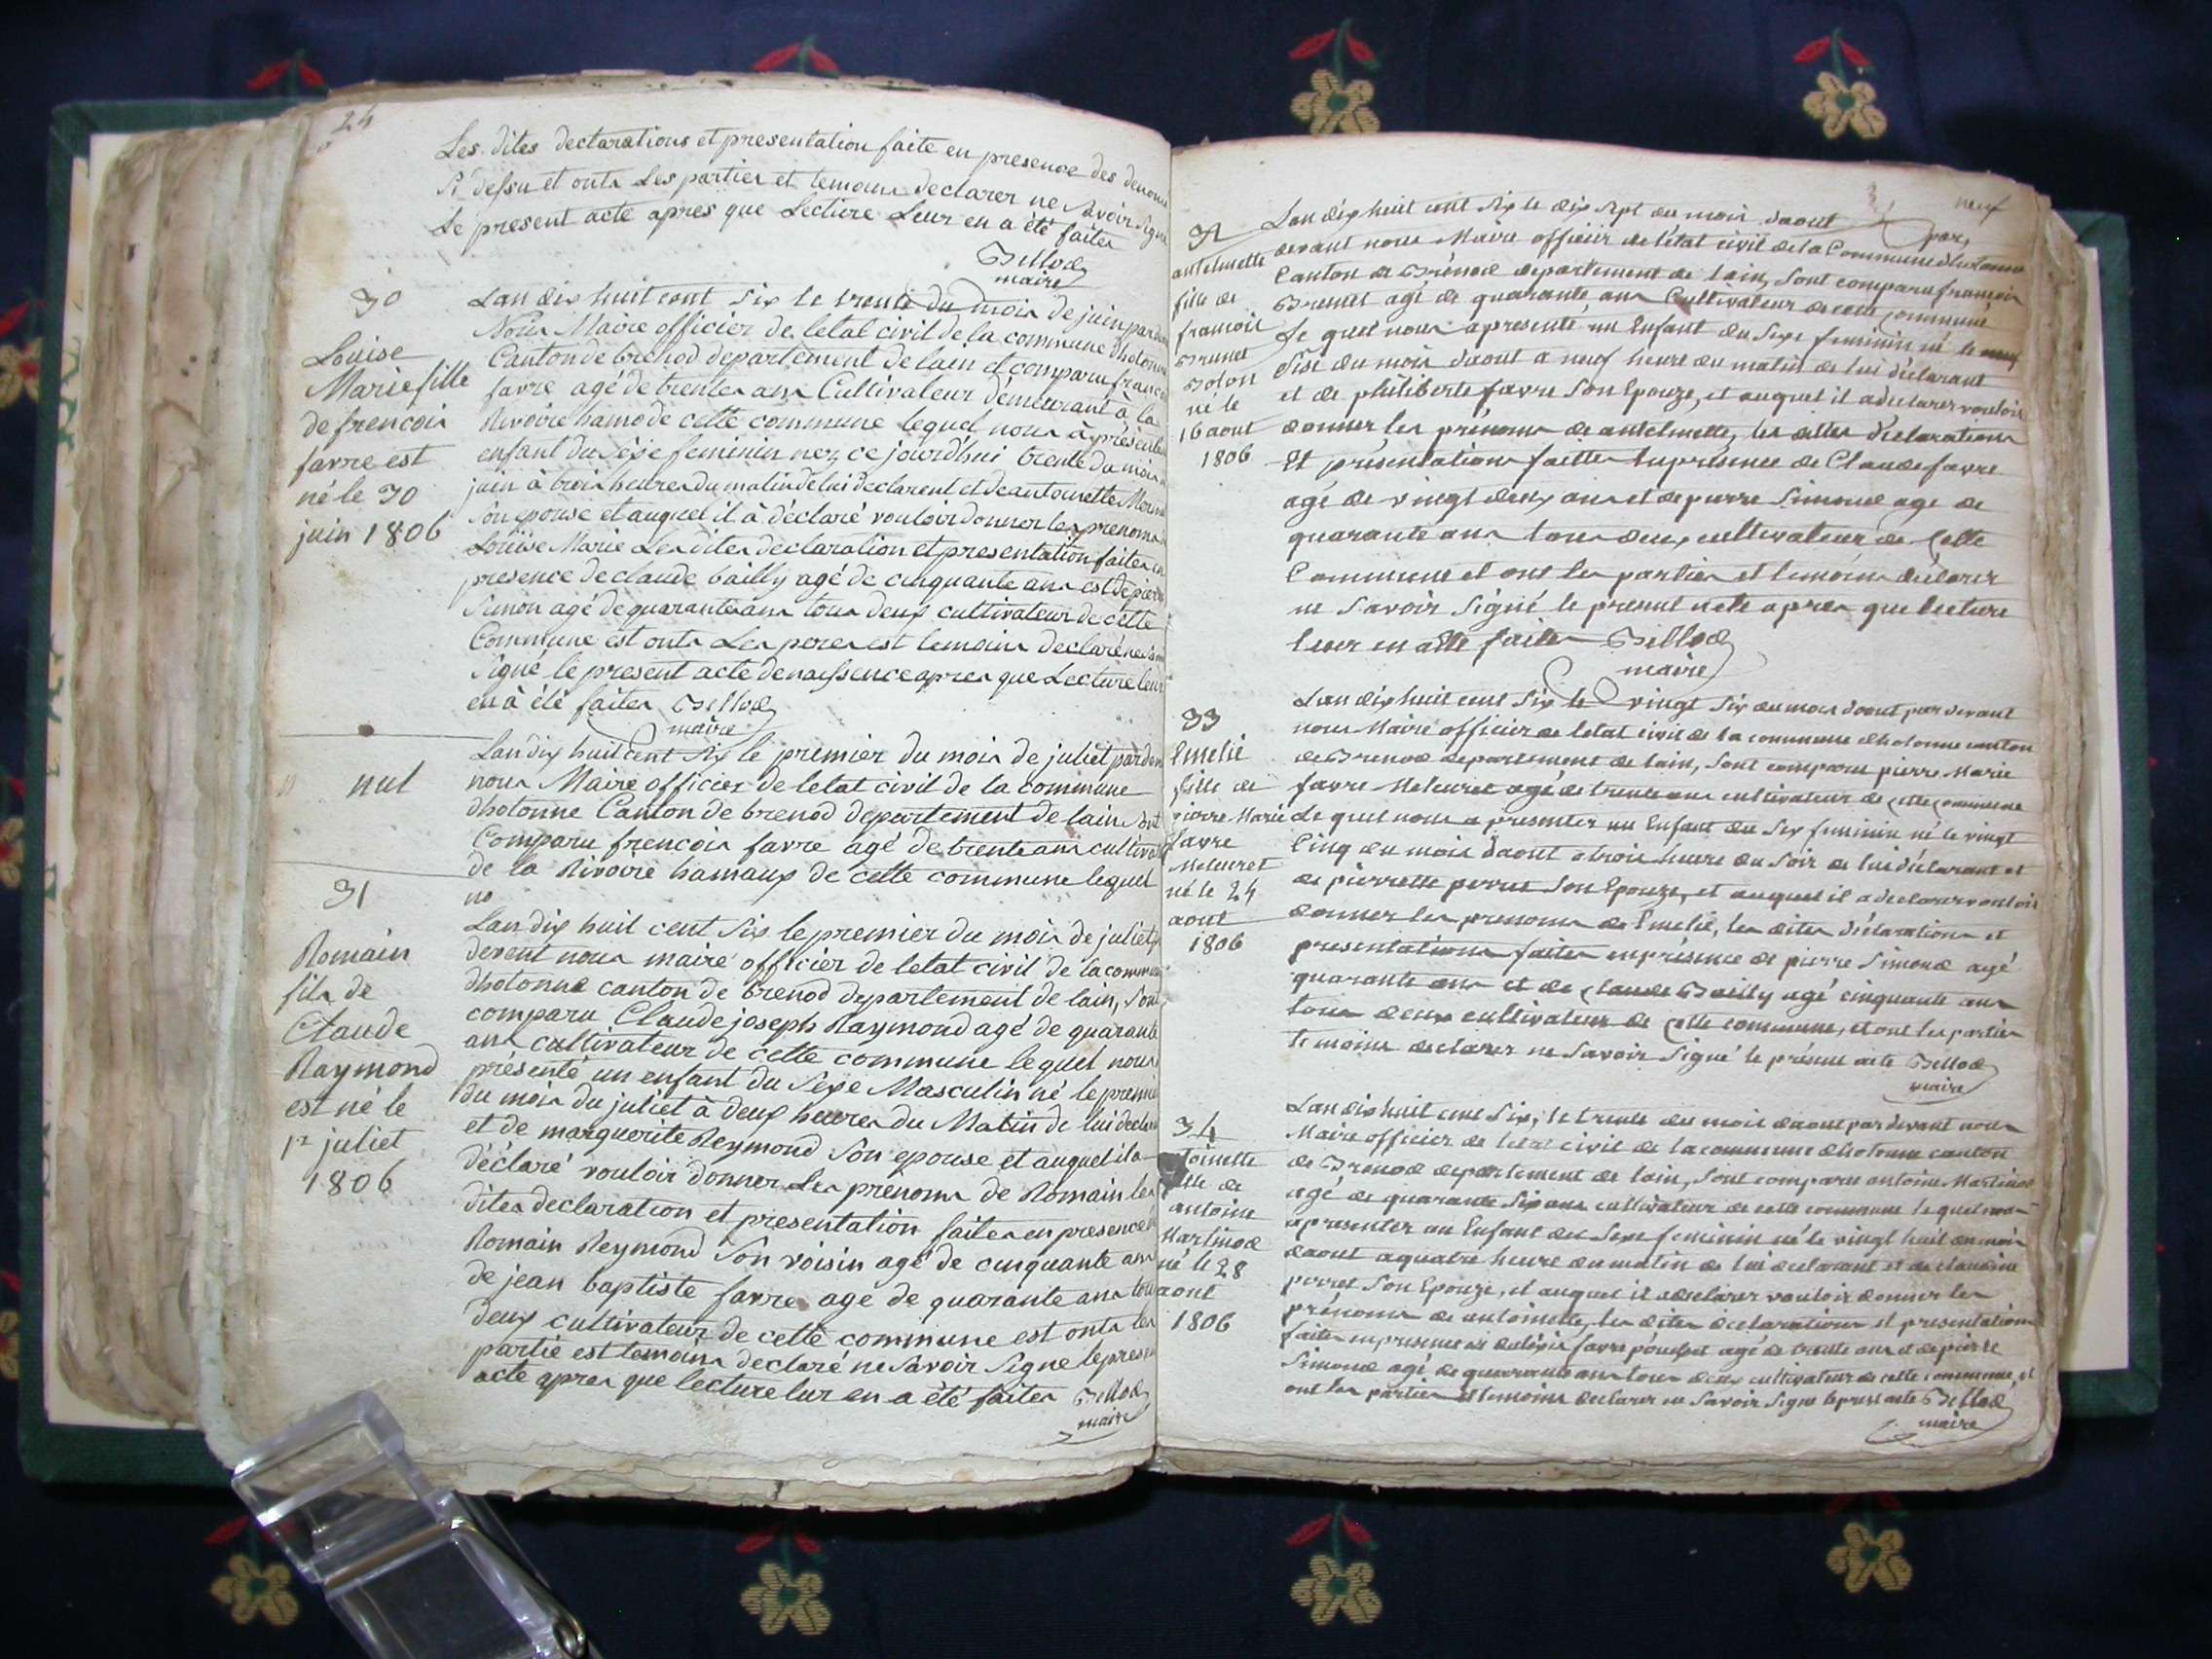 24
Les dites declarations et presentation faite en presence des
Si dessu et onts Les parties et temoins declarer ne savoir signe
Le present acte apres que Lecture Leur en a été faites
Bellod
maire
30
Louise
Marie fille
de frencois
favre est
né le 30
juin 1806
Lan dix huit cent six le trente du mois de juin par
Nous Maire officier de letat civil de la commune dhotonne
Canton de brenod departement de lain et comparu francois
favre agé de trentes ans Cultivateur demeurant à la
Rivoire hamo de cette commune lequel nous à présenté
enfant du séxe feminin nez ce jourd'hui trente du mois
juin à trois heures du matin de lui declarent et de antoinette
son epouse et auquel il à déclaré vouloir donner les prenoms
Louise Marie Les dites declaration et presentation faites en
presence de claude bailly agé de cinquante ans est de pierre
Simon agé de quarante ans tous deux cultivateur de cette
Commune est onts Les peres est temoins declaré ne
Signé le present acte de naissence apres que Lecture leur
en à été faites Bellod
maire
nul
Lan dix huit cent six le premier du mois de juliet par
nous Maire officier de letat civil de la commune
dhotonne Canton de brenod departement de lain sont
Comparu frencois favre agé de trente ans
de la Rivoire hamaux de cette commune lequel
no
31
Romain
fils de
Claude
Raymond
est né le
1r juliet
1806
Lan dix huit cent six le premier du mois de juliet
devent nous maire officier de letat civil de la commune
dhotonne canton de brenod departement de lain, sont
comparu Claude joseph Raymond agé de quarante
ans cultivateur de cette commune lequel nous
présenté un enfant du séxe Masculin né le premier
du mois du juliet à deux heures du Matin de lui
et de marguerite Reymond son epouse et auquel il a
déclaré vouloir donner Les prenoms de Romain les
dites declaration et presentation faites en presence
Romain Reymond son voisin agé de cinquante ans
de jean baptiste favre agé de quarante ans tous
deux cultivateur de cette commune est onts les
partie est temoins declaré ne savoir signe le present
acte apres que lecture lur en a été faites Bellod
maire
neuf
32
antelmette
fille de
francois
Brunet
né le
16 aout
1806
Lan dix huit cent six le dix sept du mois daout par,
devant nous Maire officier de létat civil de la Commune dhotonne
Canton de Brénod departement de lain, sont comparu francois
Brunet agé de quarante ans Cultivateur de cette commune
Le quel nous a presenté un Enfant du sexe feminin né le
seise du mois daout a neuf heure du matin de lui déclarant
et de philiberte favre son Epouze, et auquel il a declarer vouloir
donner les prénoms de antelmette, les dittes déclarations
Et présentations faittes en présence de Claude favre
agé de vingt deux ans et de pierre Simond age de
quarante ans tous deux cultivateur de Cette
Commune et ont les parties et temoins déclarer
ne savoir Signé le present acte apres que lecture
leur en a été faites Bellod
maire
33
Emelie
fille de
pierre Marie
favre
Meteuret
né le 24
aout
1806
Lan dix huit cent six le vingt six du mois daout par devant
nous Maire officier de letat civil de la commune dhotonne canton
de Brenod departement de lain, sont comparu pierre Marie
favre Meteuret agé de trente ans cultivateur de cette commune
Le quel nous a presenter un Enfant du sex feminin né le vingt
Cinq du mois daout a trois heure du soir de lui déclarant et
de pierrette perret son Epouze, et auquel il a declarer vouloir
donner les prenoms de Emelie, les dites déclarations et
presentations faites en présence de pierre Simond agé
quarante ans et de Claude Bailly agé cinquante ans
tous deux cultivateur de Cette commune, et ont les parties
temoins declarer ne savoir Signé le présent acte Bellod
maire
34
fille de
antoine
Martinod
né le 28
aout
1806
Lan dix huit cent six, le trente du mois daout par devant nous
Maire officier de letat civil de la commune dhotonne canton
de Brenod departement de lain, sont comparu antoine Martinod
agé de quarante six ans cultivateur de cette commune le quel nous
a presenter un Enfant du sexe feminin né le vingt huit du mois
daout a quatre heure du matin de lui declarant et de claudine
perret son Epouze, et auquel il a declarer vouloir donner les
prénoms de antoinette, les dites declarations et presentations
faites en presence de favre agé de trente ans et de pierre
Simond agé de quarante ans tous deux cultivateur de cette commune, et
ont les parties et temoins declarer ne savoir signe le prest acte Bellod
maire